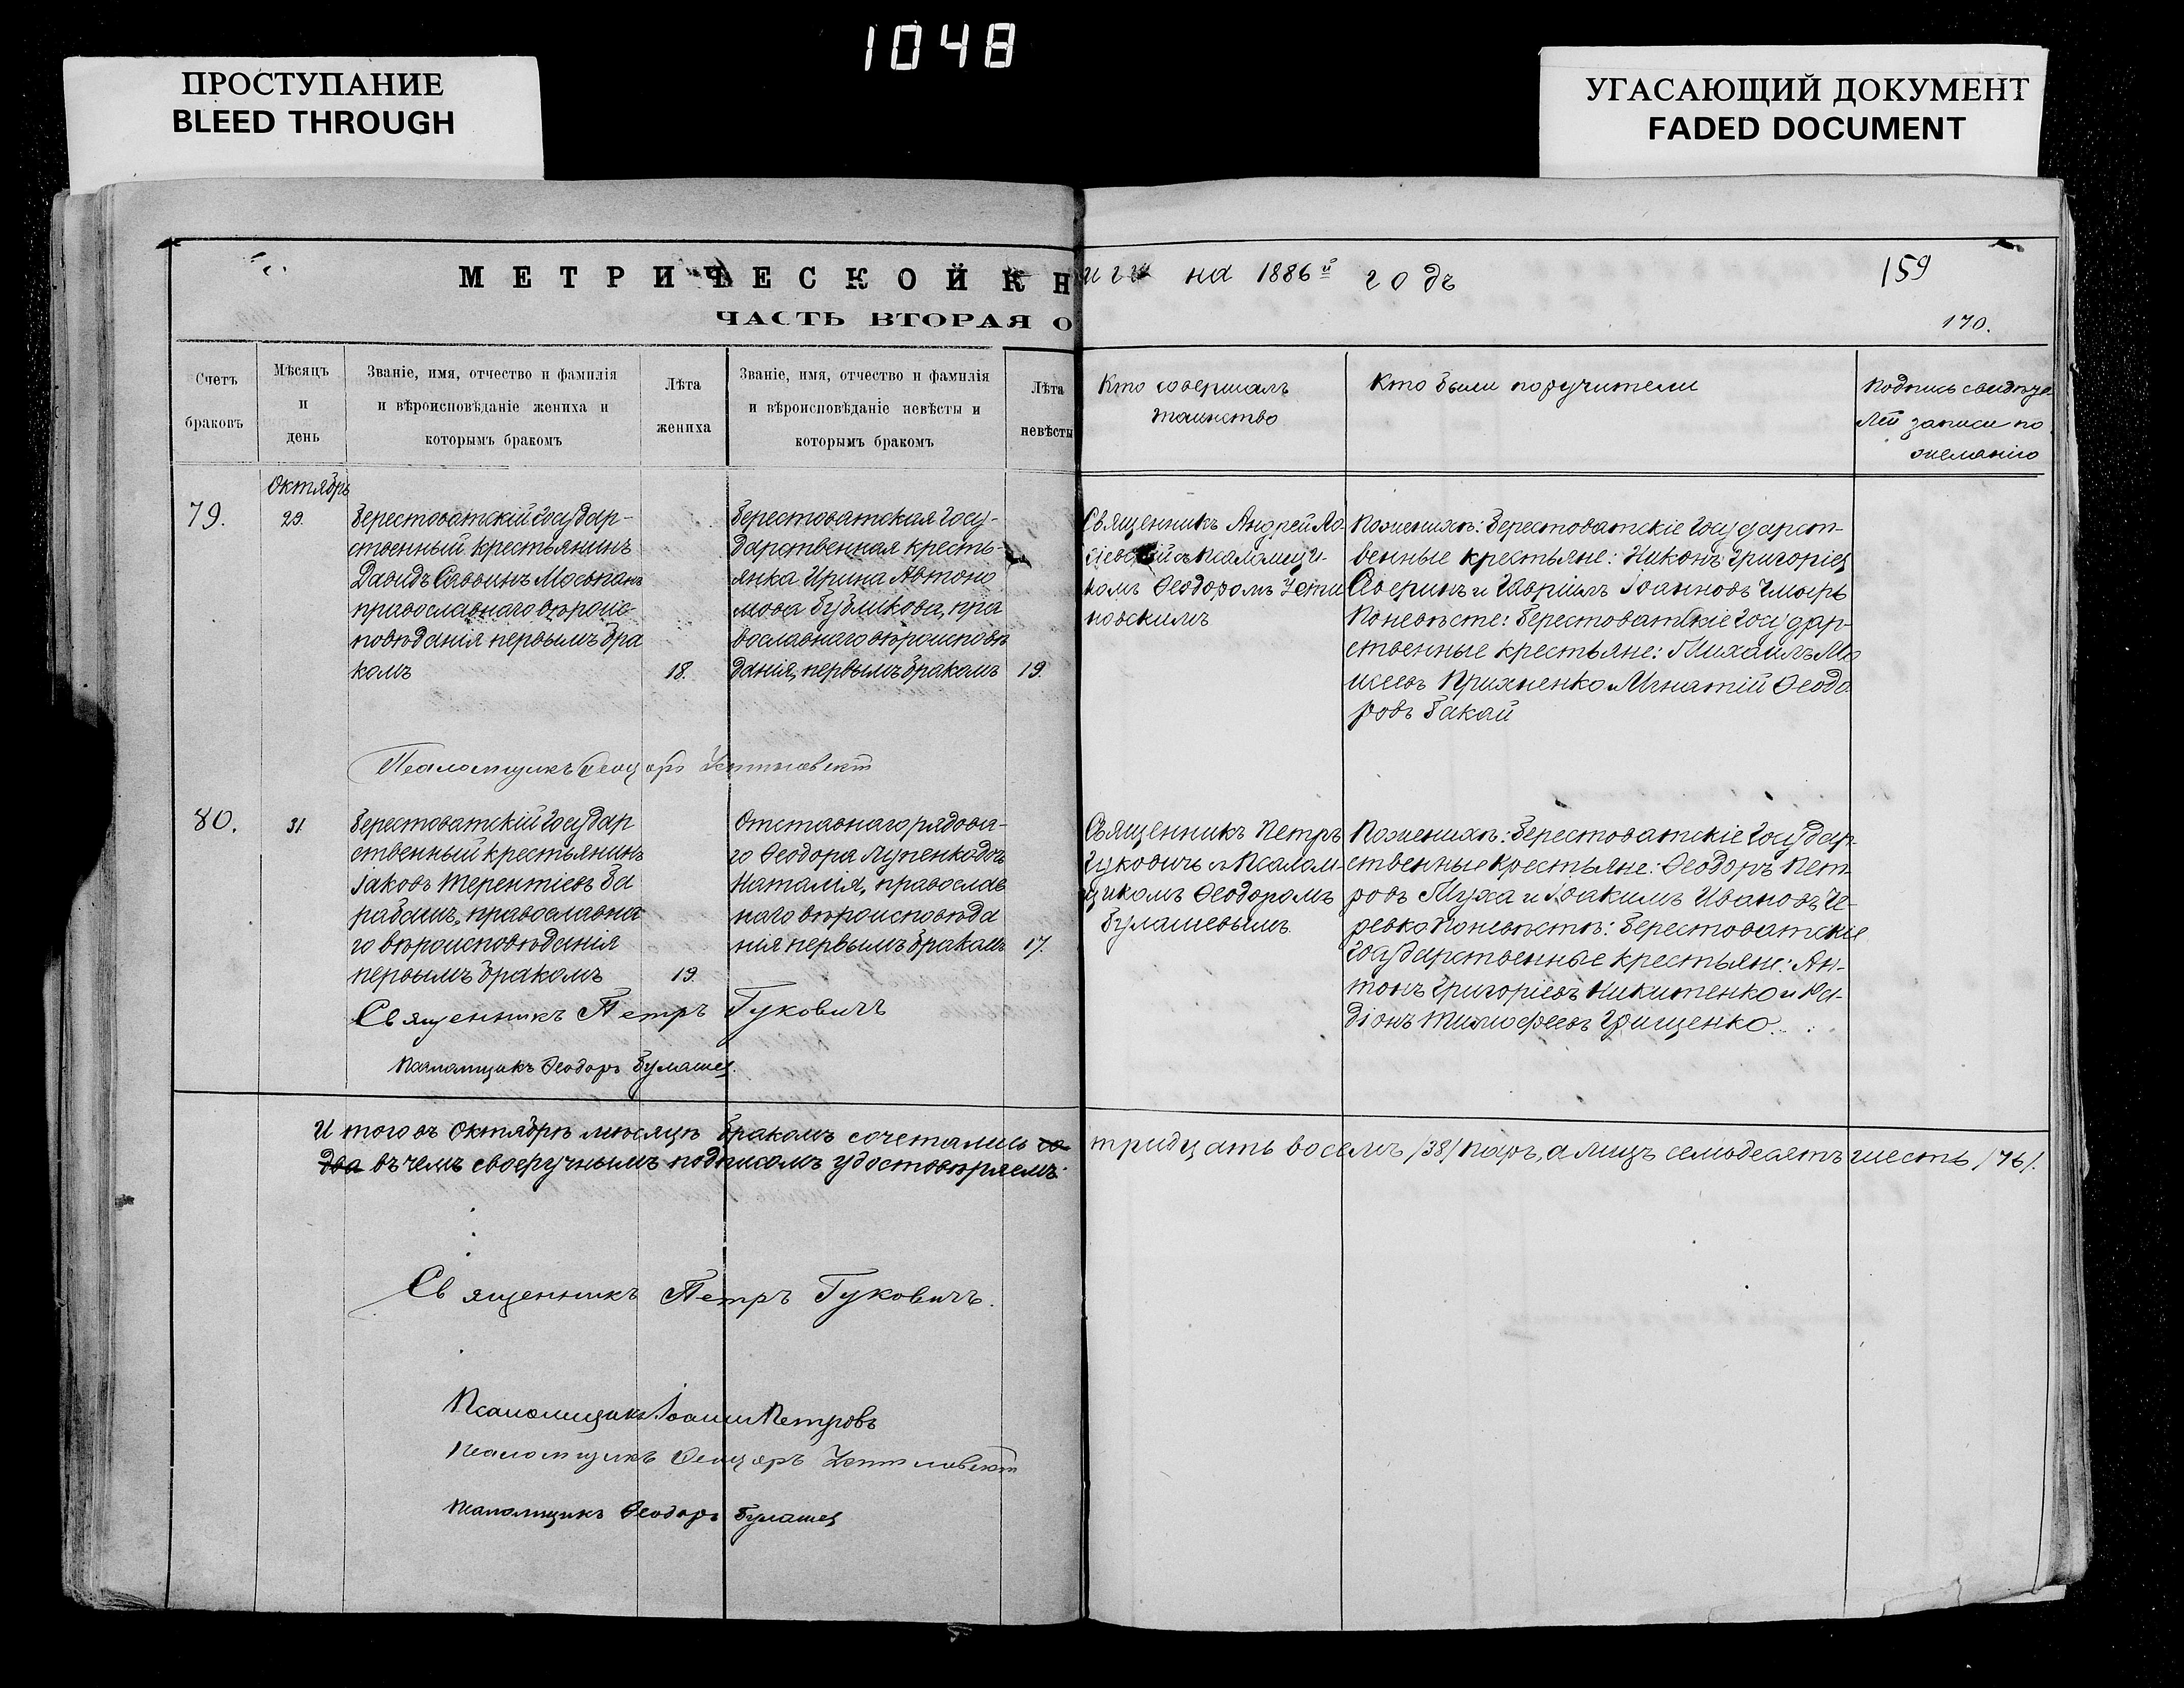 1048
ПРОСТУПАНИЕ
BLEED THROUGH
УГАСАЮЩИЙ ДОКУМЕНТ
FADED DOCUMENT
МЕТРИЧЕСКОЙ КН
иги на 1886й годъ
159
ЧАСТЬ ВТОРАЯ О
170.
Счетъ
браковъ
Мѣсяцъ
и
день
Званіе, имя, отчество и фамилія
и вѣроисповѣданіе жениха и
которымъ бракомъ
Лѣта
жениха
Званіе, имя, отчество и фамилія
и вѣроисповѣданіе невѣсты и
которымъ бракомъ
Лѣта
невѣсты
Кто совершалъ
таинство
Кто были поручители
Подпись свидѣте
лей записи по
желанію
Октябрь
79.
29.
Берестоватскій государ-
ственный крестьянинъ
Давидъ Саввинъ Мосьпанъ
православнаго вѣроис-
повѣданія первымъ бра
комъ
18.
Берестоватская госу-
дарственная кресть-
янка Ирина Автоно
мова Бубликова, пра
вославнаго вѣроисповѣ
данія, первымъ бракомъ
19.
Священникъ Андрей
съ псаломщи-
комъ Ѳеодоромъ Усти
новскимъ
По женихѣ: Берестоватскіе государст-
венные крестьяне: Никонъ Григоріев
Аверинъ и Гавріилъ Іоанновъ Чмырь
По невѣсте: Берестоватскіе государ-
ственные крестьяне: Михаилъ Мо
исеевъ Прихненко и Игнатій Ѳеодо
ровъ Бакай
Псаломщикъ Ѳеодоръ Устиновскій
80.
31
Берестоватскій государ
ственный крестьянинъ
Іаковъ Терентіевъ Ба
рабашъ, православна
го вѣроисповѣданія
первымъ бракомъ
19.
Отставнаго рядова-
го Ѳеодора Лупенко дочь
Наталія, православ
наго вѣроисповѣда
нія первымъ бракомъ
17.
Священникъ Петръ
Гуковичъ съ псалом-
щикомъ Ѳеодоромъ
Булашевымъ
По женихѣ: Берестоватскіе государ-
ственные крестьяне: Ѳеодоръ Пет
ровъ Муха и Іоакимъ Ивановъ Че-
ревко По невѣстѣ: Берестоватскіе
государственные крестьяне: Ан-
тонъ Григоріевъ Никитенко и
Тимофеевъ Грищенко.
Священникъ Петръ Гуковичъ
Псаломщикъ Ѳеодоръ Булашев
И того въ Октябрѣ мѣсяцѣ бракомъ сочетались
тридцать восемь /38/ паръ, а лицъ семьдесятъ шесть /76/.
два въ чемъ своеручнымъ подписомъ удостовѣряемъ:
Священникъ Петръ Гуковичъ.
Псаломщикъ Іоаннъ Петровъ
Псаломщикъ Ѳеодоръ Устиновскій
Псаломщикъ Ѳеодоръ Булашев